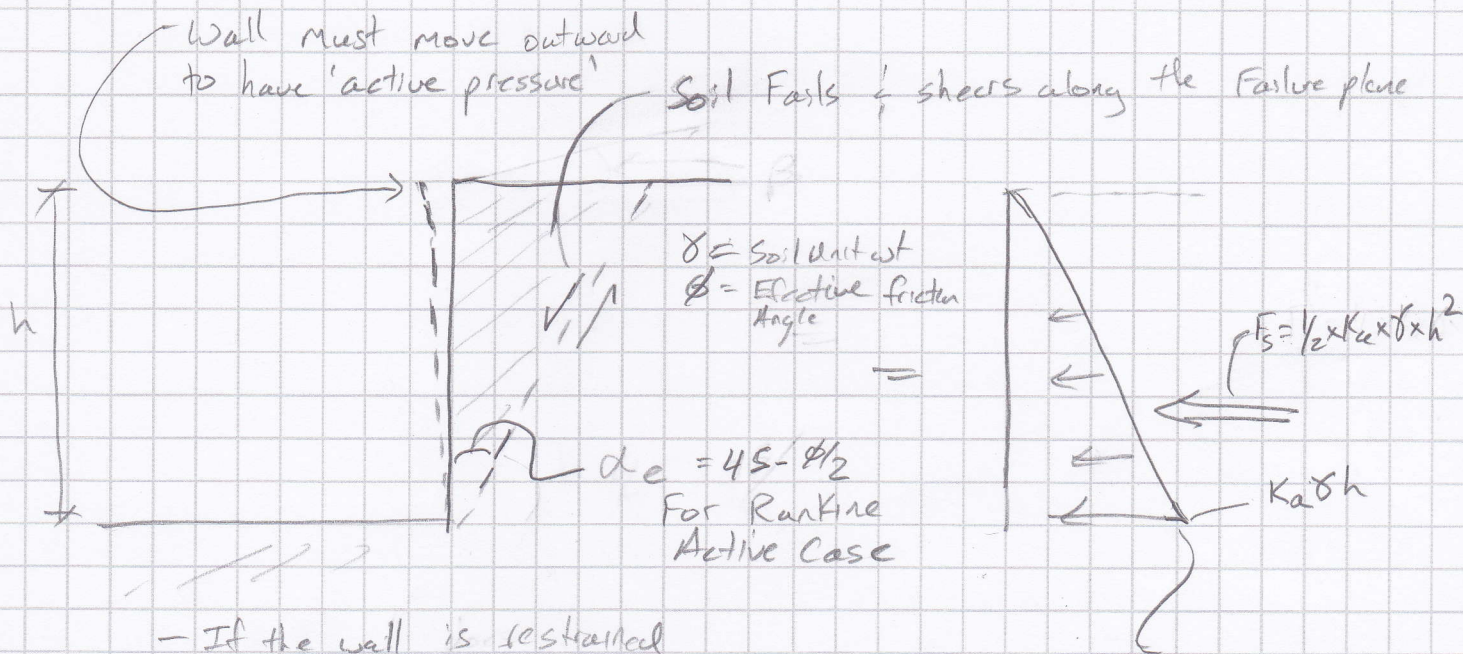 Wall must move outward
to have 'active pressure'
Soil Fails & shears along the Failure plane
β
h
γ = Soil Unit wt
ϕ = Effective friction
Angle
=
Fs = 1/2 × Ka × γ × h²
αe = 45 - ϕ/2
For Rankine
Active Case
Kaγh
- If the wall is restrained